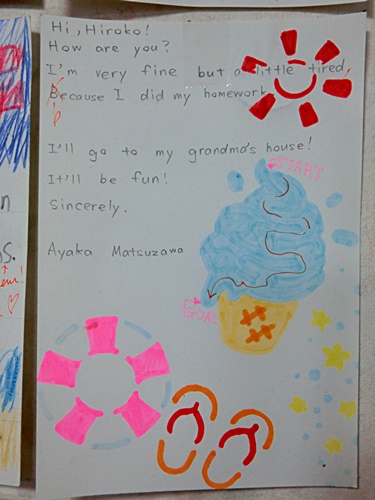 Hi, Hiroko!
How are you?
I'm very fine but a little tired,
Because I did my homework.
b
I'll go to my grandma's house!
It'll be fun!
Sincerely.
Ayaka Matsuzawa
START
GOAL